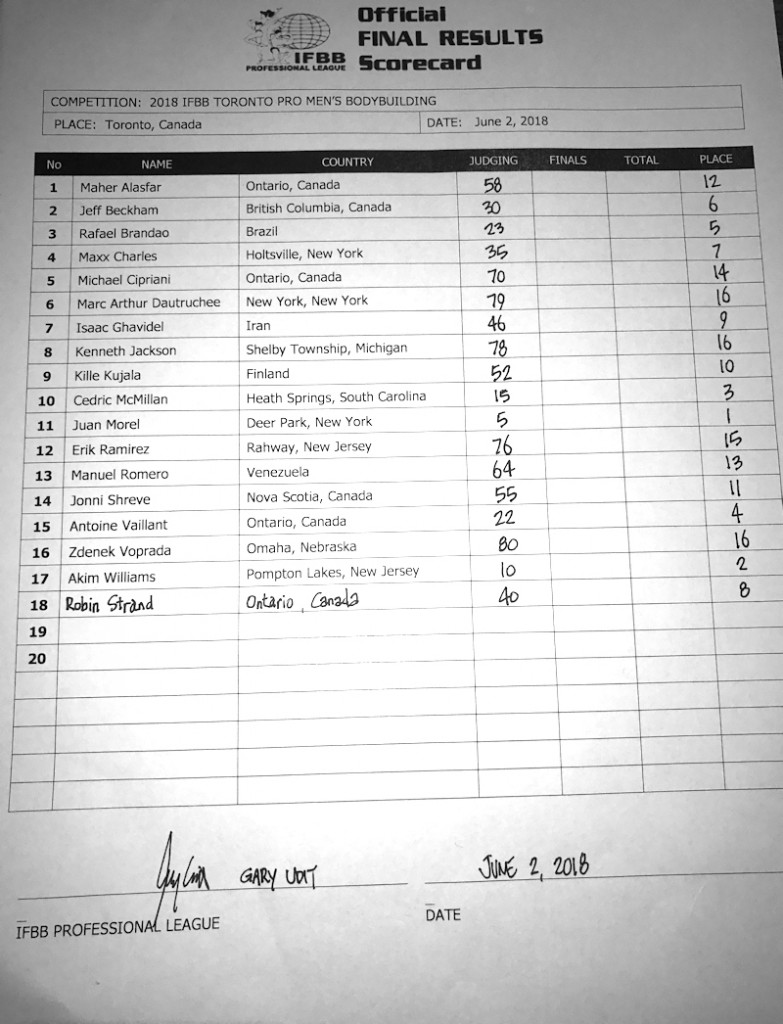 Official
FINAL RESULTS
IFBB
PROFESSIONAL LEAGUE Scorecard
COMPETITION: 2018 IFBB TORONTO PRO MEN'S BODYBUILDING
PLACE: Toronto, Canada DATE: June 2, 2018
No NAME COUNTRY JUDGING FINALS TOTAL PLACE
1 Maher Alasfar Ontario, Canada 58 12
2 Jeff Beckham British Columbia, Canada 30 6
3 Rafael Brandao Brazil 23 5
4 Maxx Charles Holtsville, New York 35 7
5 Michael Cipriani Ontario, Canada 70 14
6 Marc Arthur Dautruchee New York, New York 79 16
7 Isaac Ghavidel Iran 46 9
8 Kenneth Jackson Shelby Township, Michigan 78 16
9 Kille Kujala Finland 52 10
10 Cedric McMillan Heath Springs, South Carolina 15 3
11 Juan Morel Deer Park, New York 5 1
12 Erik Ramirez Rahway, New Jersey 76 15
13 Manuel Romero Venezuela 64 13
14 Jonni Shreve Nova Scotia, Canada 55 11
15 Antoine Vaillant Ontario, Canada 22 4
16 Zdenek Voprada Omaha, Nebraska 80 16
17 Akim Williams Pompton Lakes, New Jersey 10 2
18 Robin Strand Ontario, Canada 40 8
19
20
GARY UDIT JUNE 2, 2018
IFBB PROFESSIONAL LEAGUE DATE